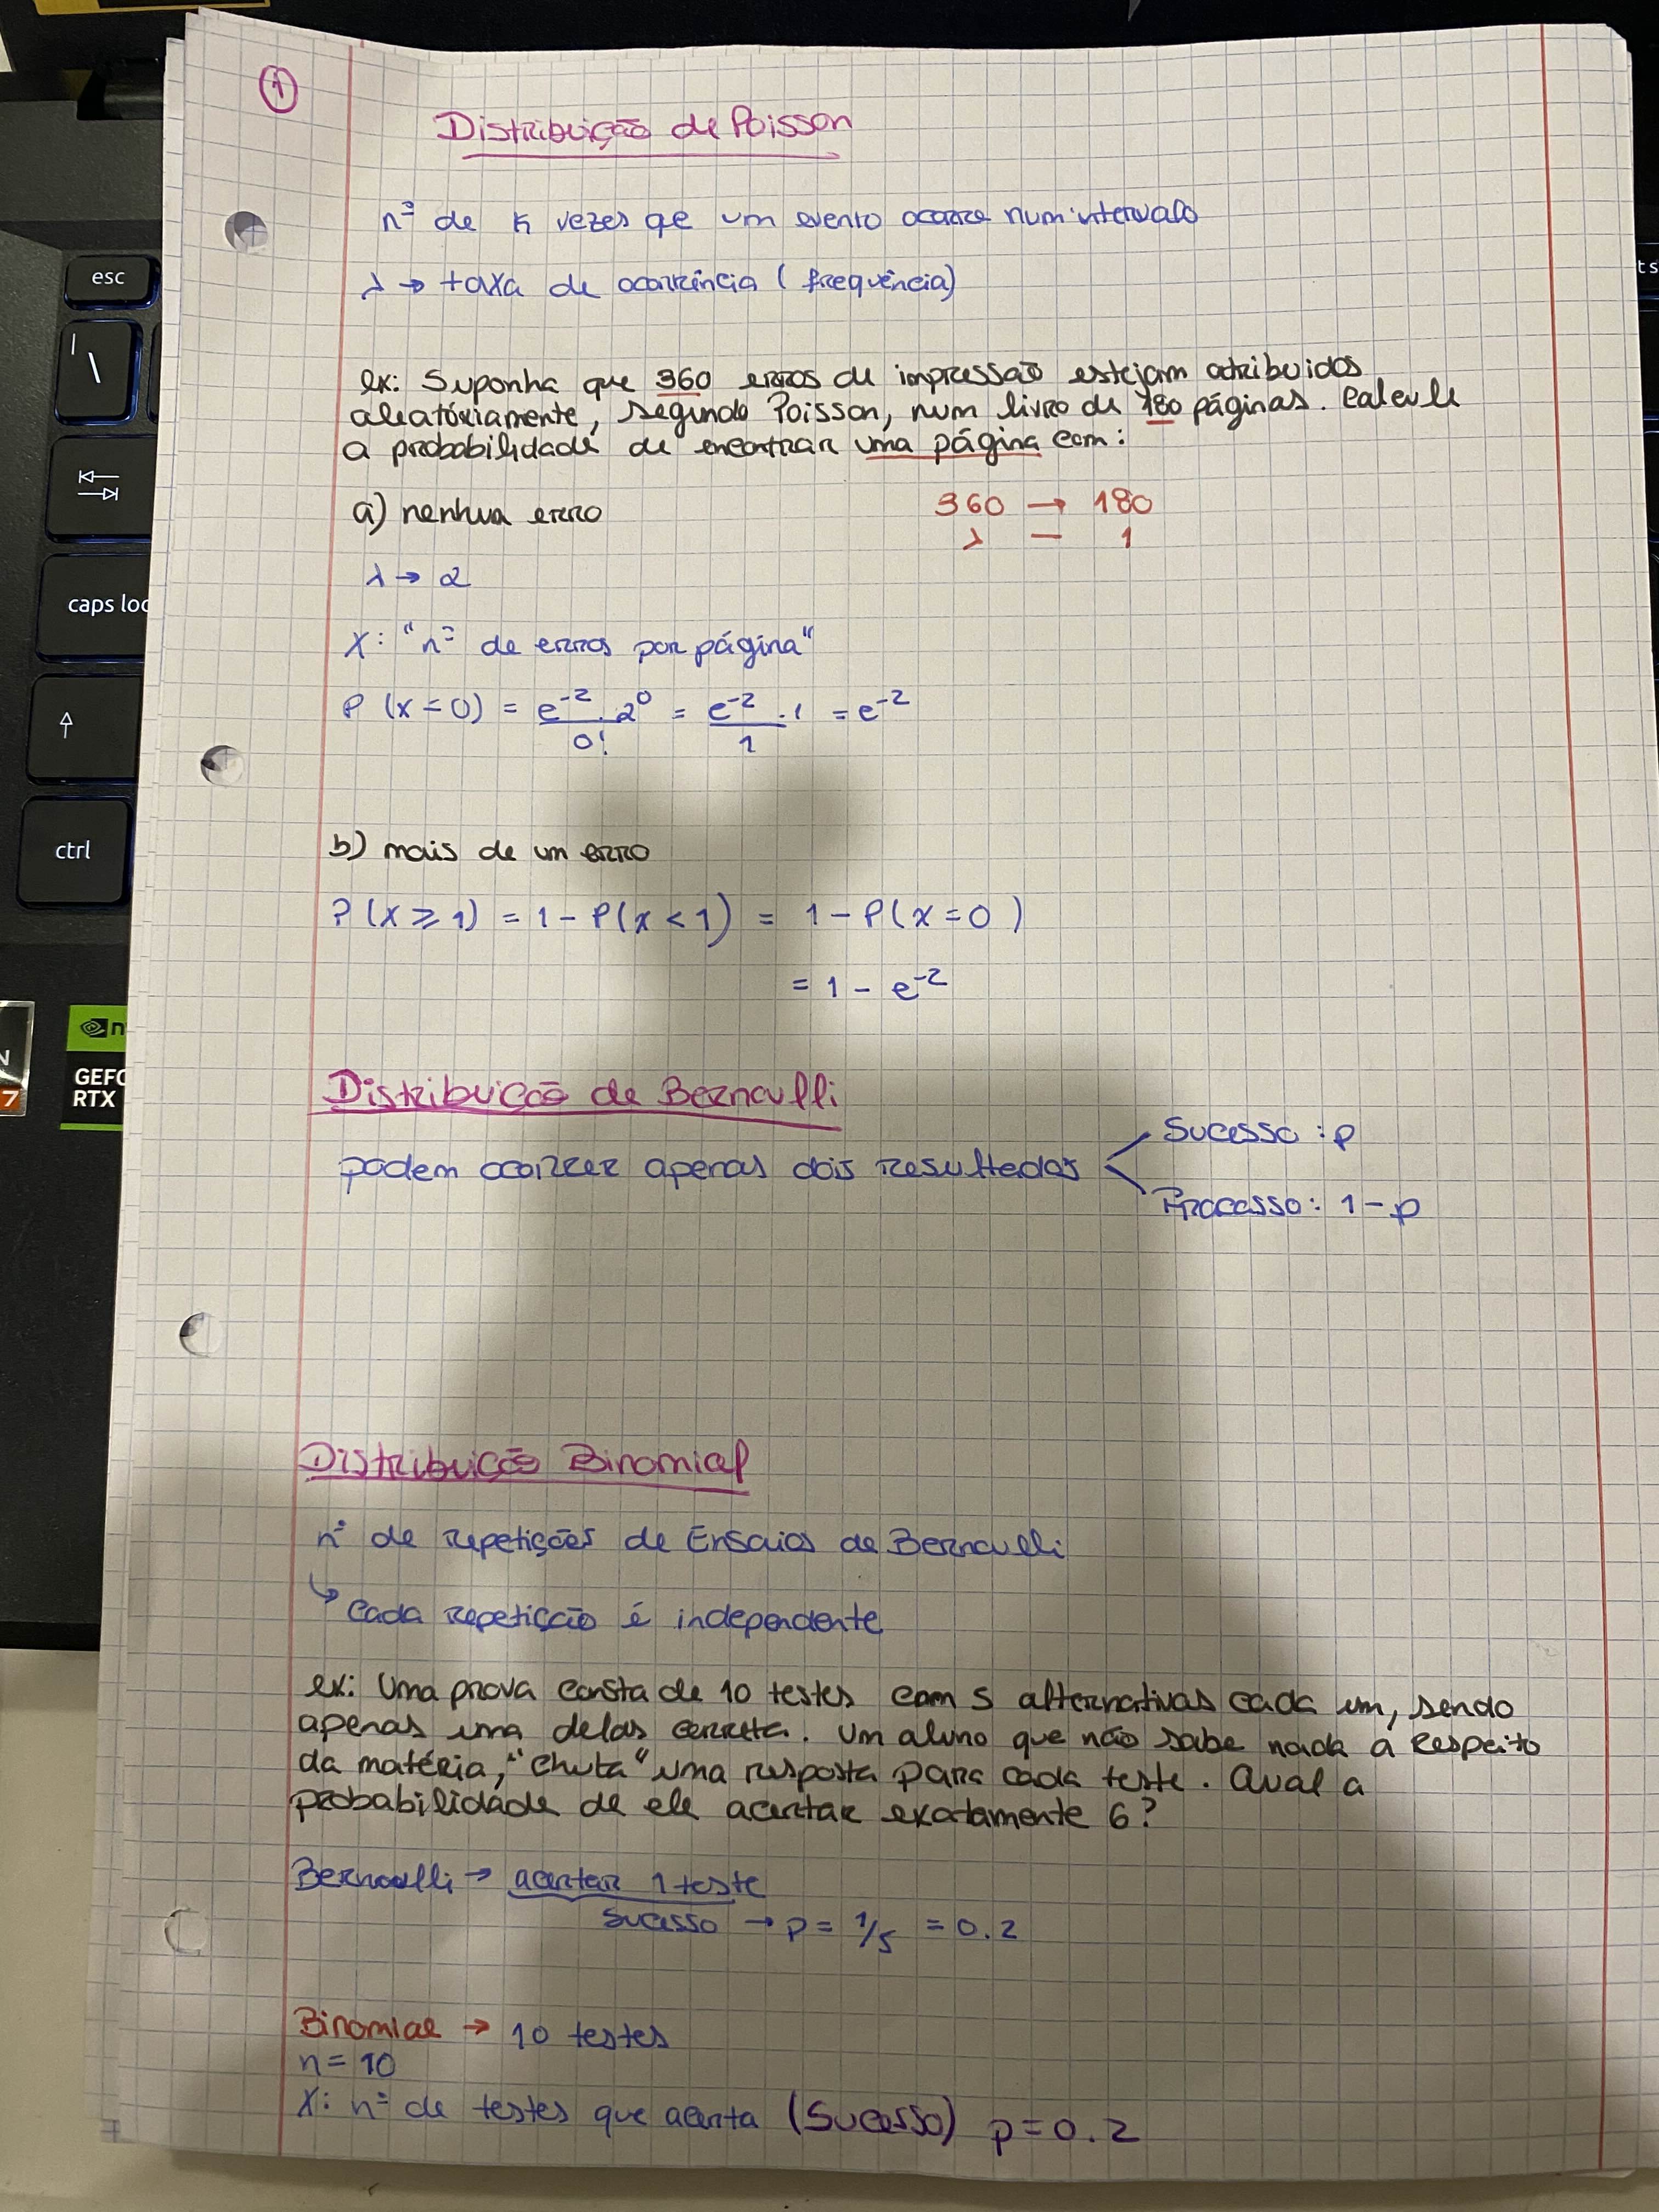 1
Distribuição de Poisson
nº de k vezes qe um evento ocorre num intervalo
λ → taxa de ocorrência (frequência)
ex: Suponha que 360 erros de impressão estejam atribuidos
aleatóriamente, segundo Poisson, num livro de 180 páginas. Calcule
a probabilidade de encontrar uma página com:
a) nenhua erro
360 → 180
λ — 1
λ → 2
X: "nº de erros por página"
P (x = 0) = e⁻² . 2⁰ / 0! = e⁻² . 1 / 1 = e⁻²
b) mais de um erro
P(X ≥ 1) = 1 - P(x < 1) = 1 - P(x = 0)
= 1 - e⁻²
Distribuição de Bernoulli
podem ocorrer apenas dois resultados
Sucesso : p
Processo : 1 - p
Distribuição Binomial
nº de repetições de Ensaios de Bernoulli
↳ cada repetição é independente
ex: Uma prova consta de 10 testes com 5 alternativas cada um, sendo
apenas uma delas correta. Um aluno que não sabe nada a respeito
da matéria, "chuta" uma resposta para cada teste. Qual a
probabilidade de ele acertar exatamente 6?
Bernoulli → acertar 1 teste
sucesso → p = 1/5 = 0.2
Binomial → 10 testes
n = 10
X: nº de testes que acerta (Sucesso) p = 0.2
esc
| \
caps loc
ctrl
GEFO
RTX
7
ts
N
n